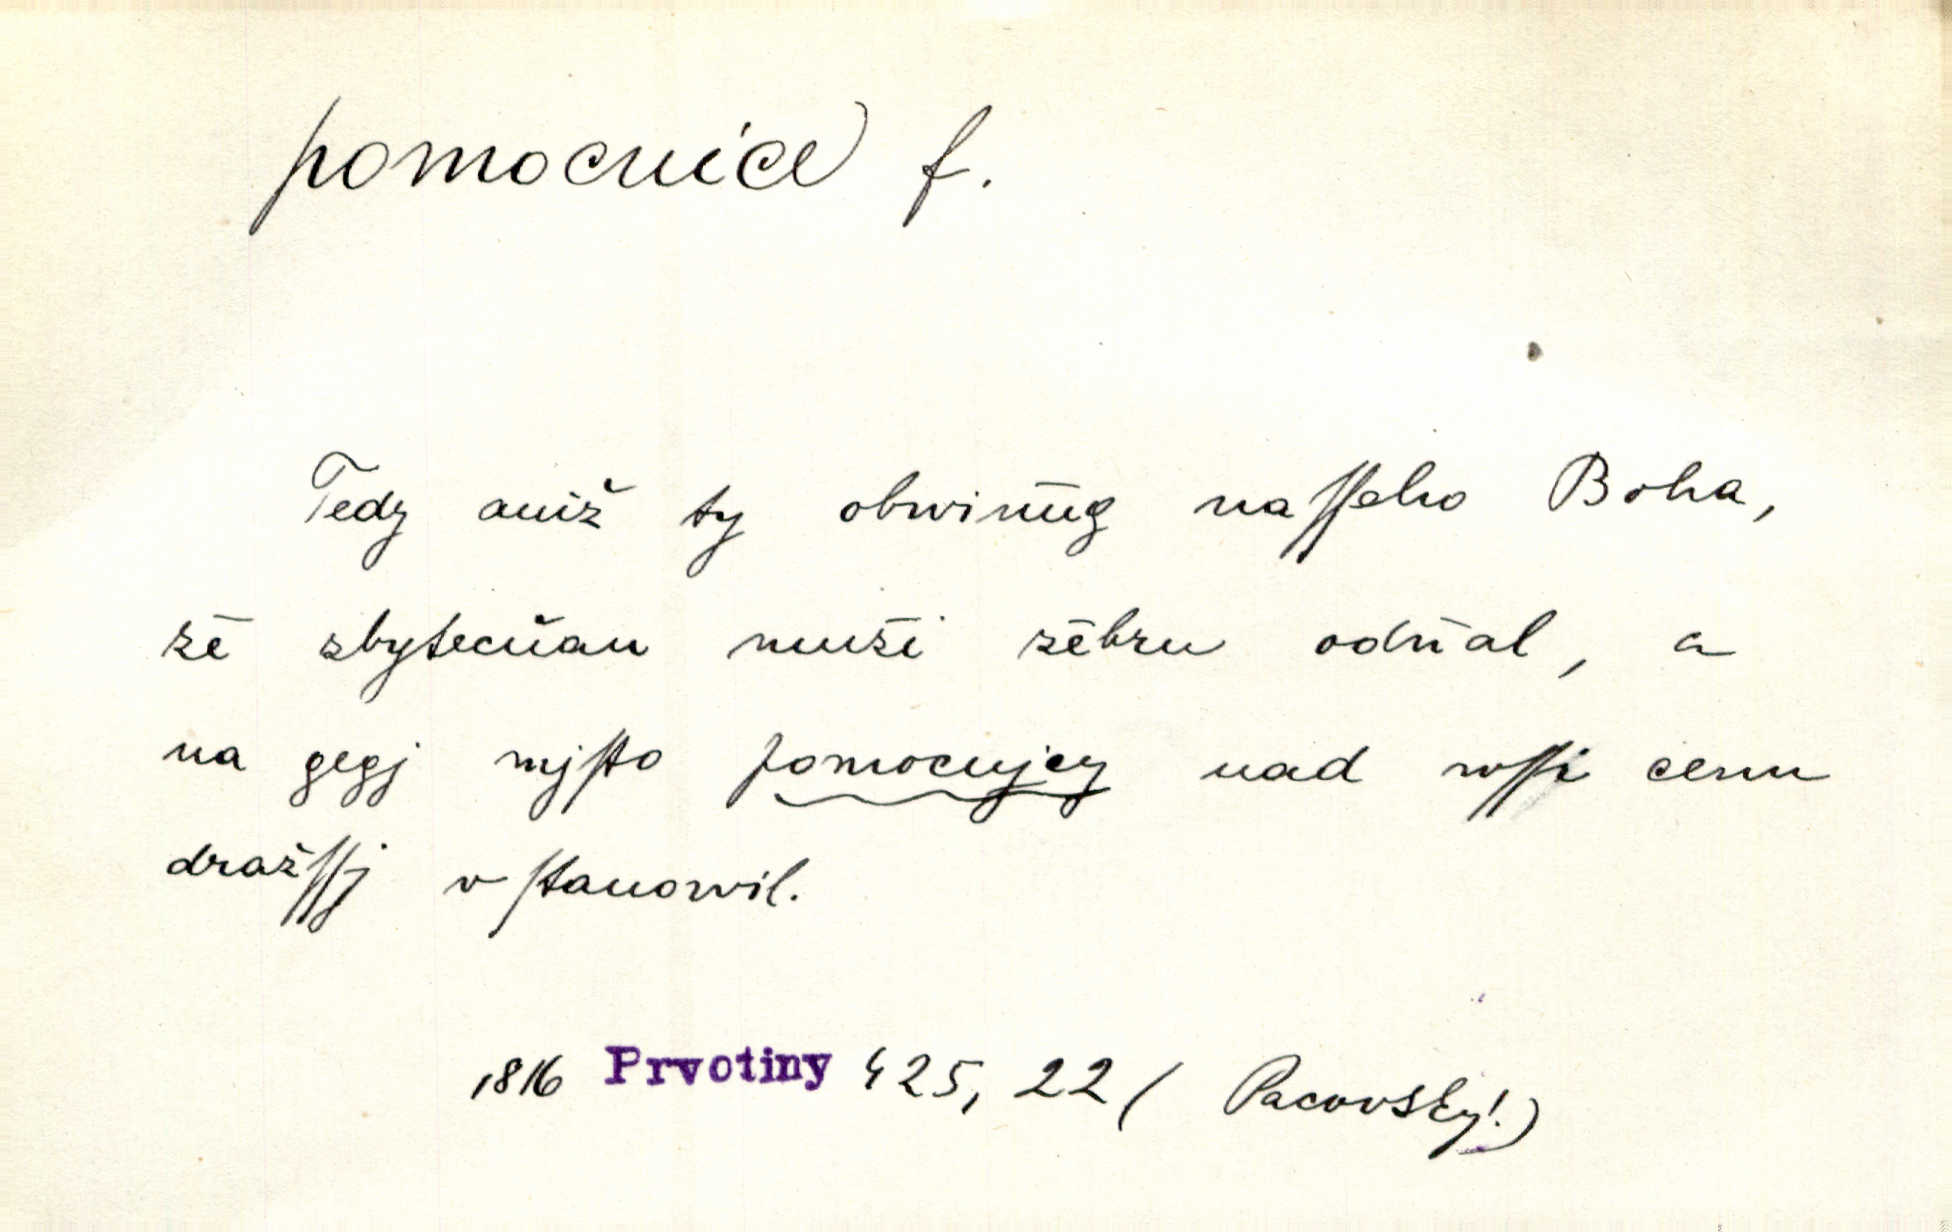 pomocnice f.
Tedy aniž ty obwiňůg nassseho Boha,
že zbytečňau muži žebru odňal, a
na gegj mjsto pomocnjcy nad wssi cenu
dražssj vstanowil.
1816 Prvotiny 425, 22 ( Pacovský!)